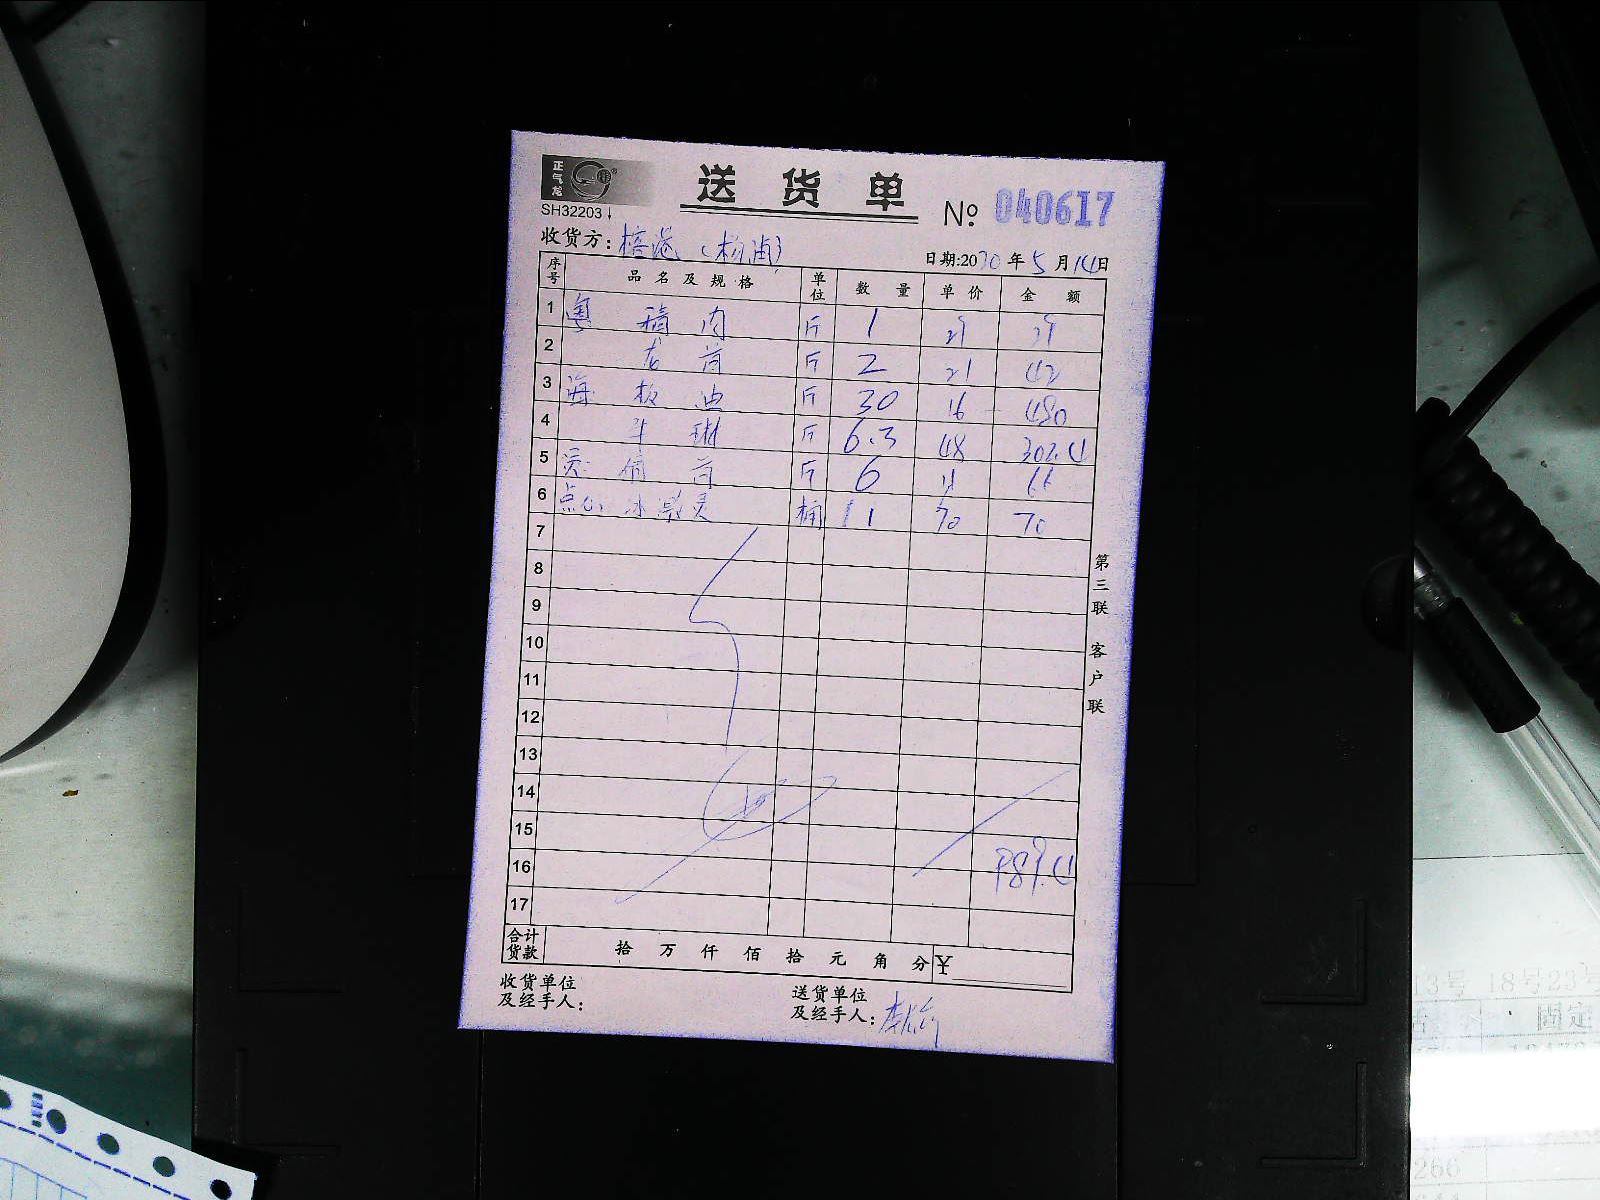 正气龙
SH32203
送货单
№ 040617
收货方: 榕港 (杨浦)
日期:2020年5月14日
序号 品名及规格 单位 数量 单价 金额
1 粤 精肉 斤 1 29 29
2 斤 2 21 42
3 海 斤 30 16 480
4 斤 6.3 48 302.4
5 斤 6 11 66
6 点心 冰 灵 桶 1 70 70
7
8
9
10
11
12
13
14
15
16 989.4
17
合计货款 拾 万 仟 佰 拾 元 角 分 ¥
收货单位及经手人:
送货单位及经手人:
第三联 客户联
13号 18号23号
固定
266